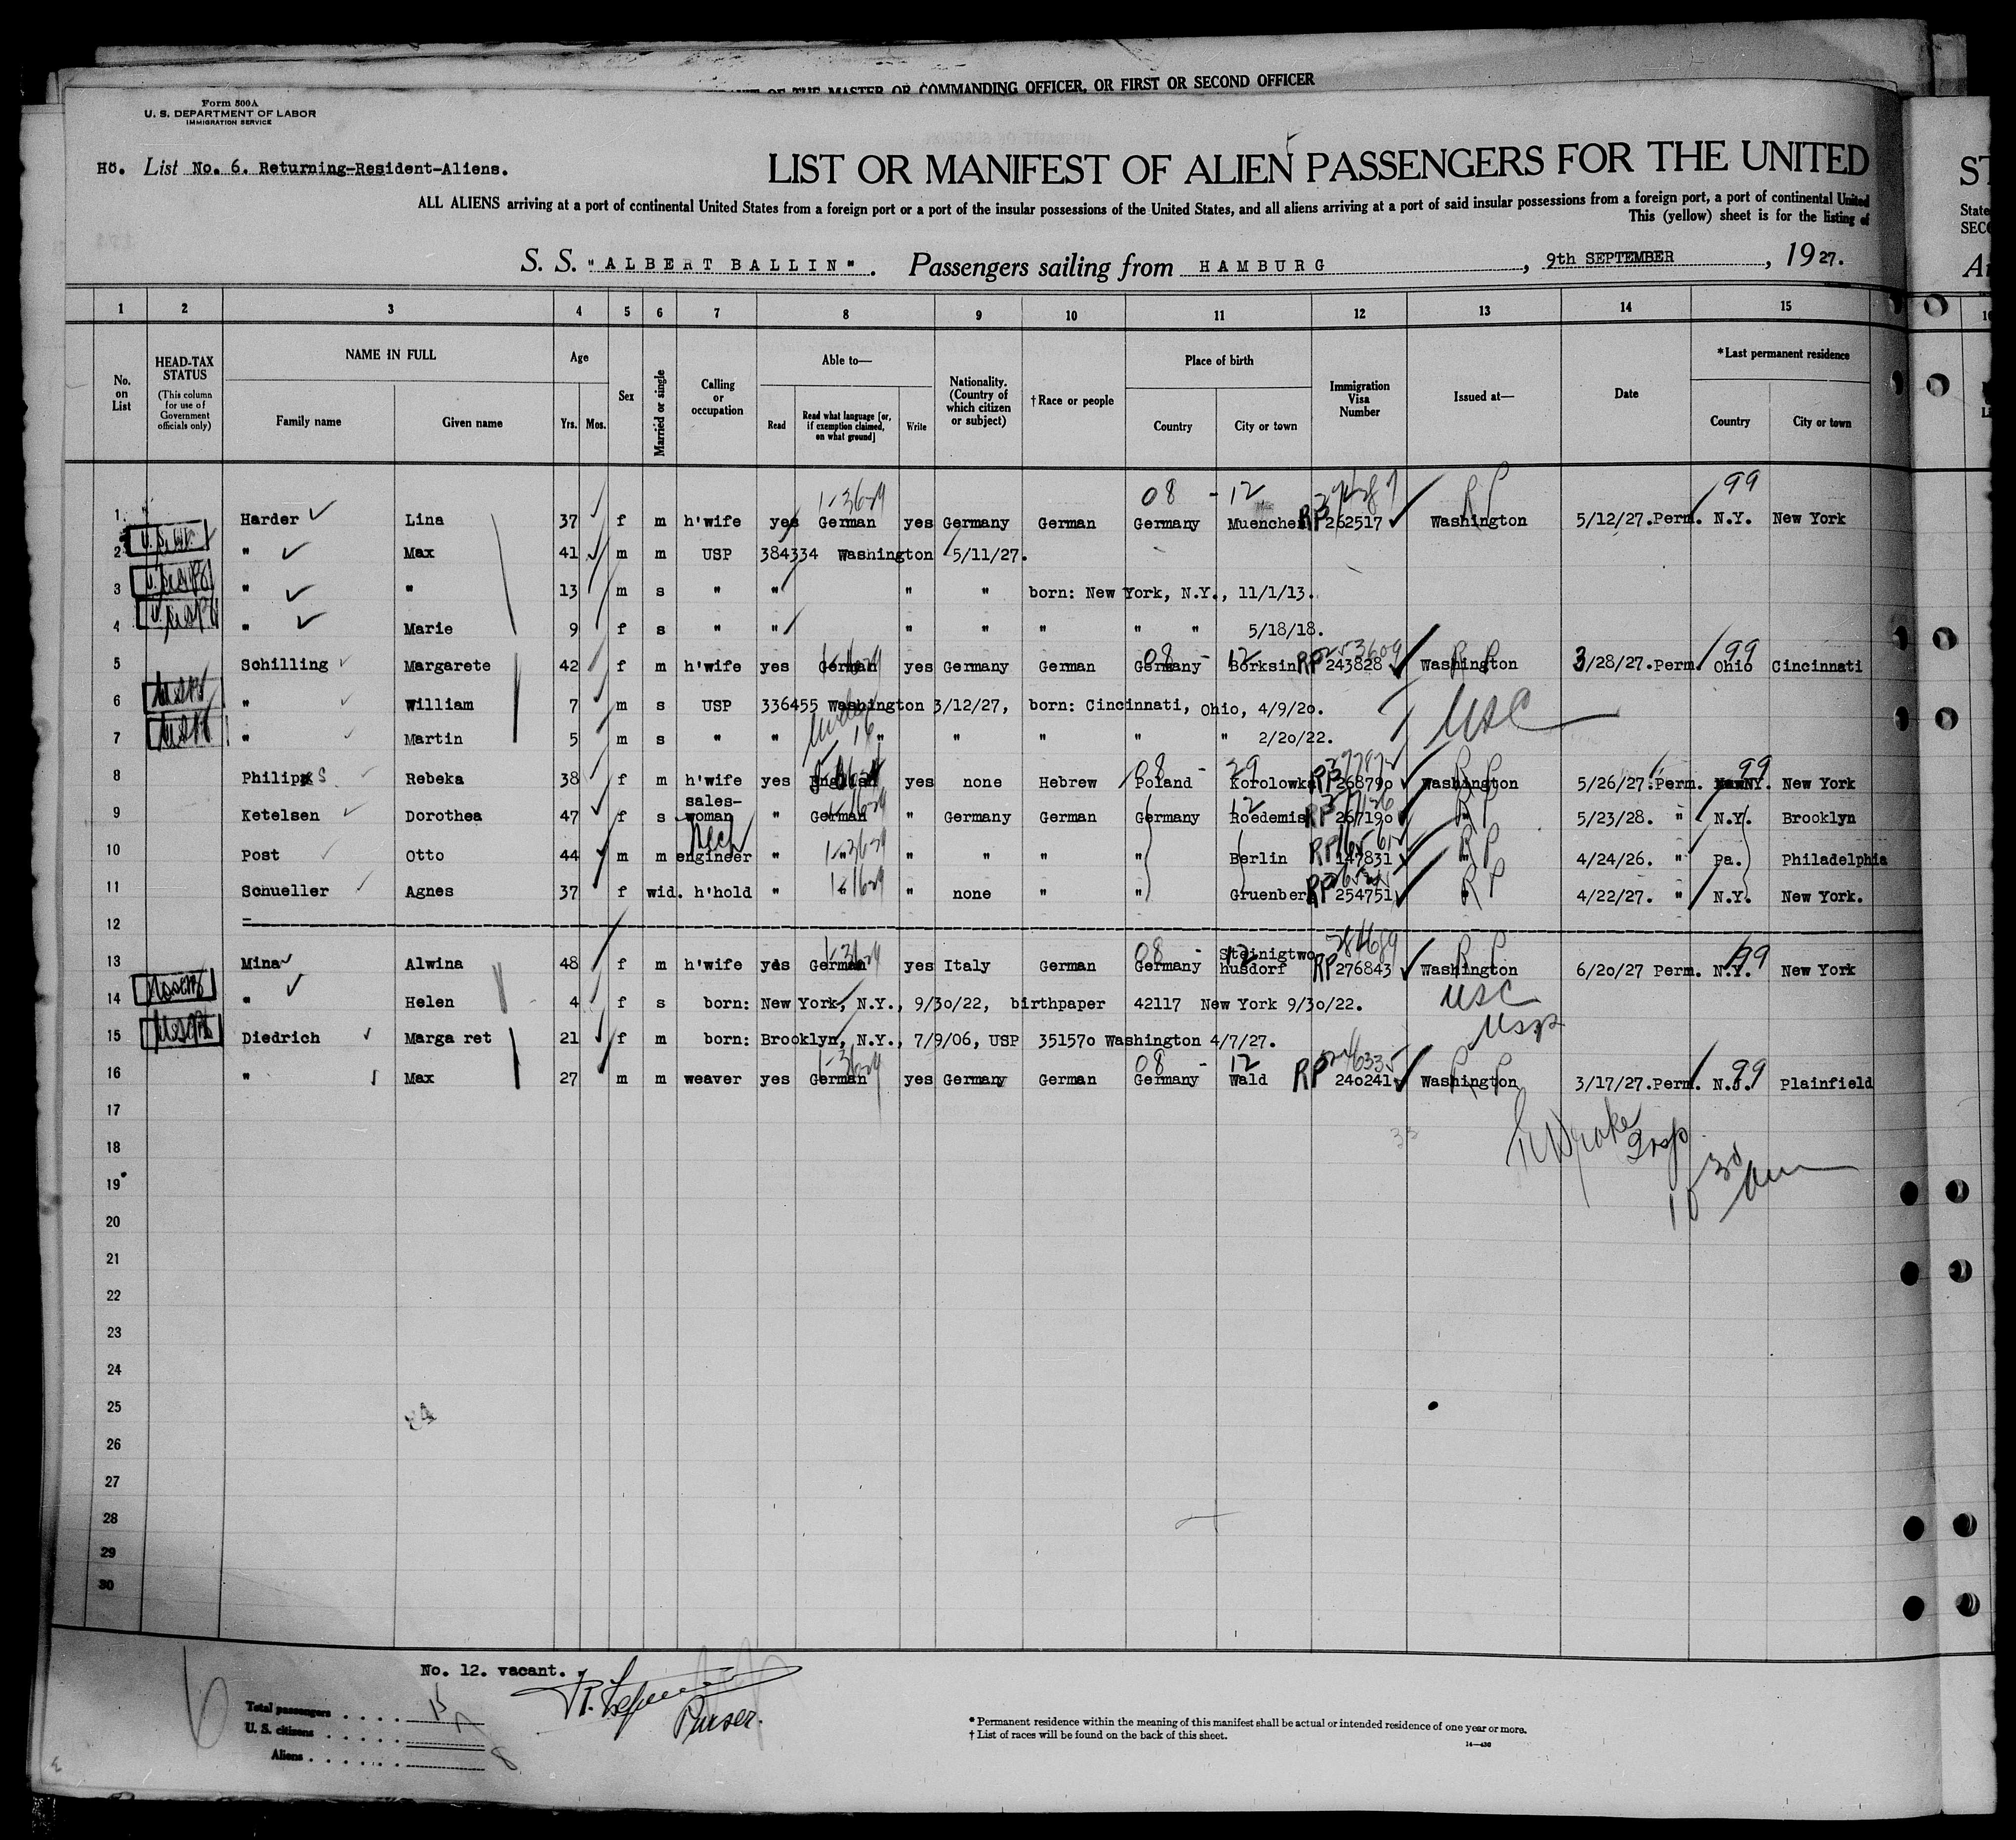 COMMANDING OFFICER, OR FIRST OR SECOND OFFICER
Form 500A
U. S. DEPARTMENT OF LABOR
IMMIGRATION SERVICE
Hö. List No. 6. Returning-Resident-Aliens.
LIST OR MANIFEST OF ALIEN PASSENGERS FOR THE UNITED
ST
ALL ALIENS arriving at a port of continental United States from a foreign port or a port of the insular possessions of the United States, and all aliens arriving at a port of said insular possessions from a foreign port, a port of continental United
State
This (yellow) sheet is for the listing of
S. S. "ALBERT BALLIN". Passengers sailing from HAMBURG, 9th SEPTEMBER, 1927.
1 2 3 4 5 6 7 8 9 10 11 12 13 14 15
No. on List
HEAD-TAX STATUS (This column for use of Government officials only)
NAME IN FULL
Family name Given name
Age Yrs. Mos.
Sex
Married or single
Calling or occupation
Able to—
Read Read what language [or, if exemption claimed, on what ground] Write
Nationality. (Country of which citizen or subject)
†Race or people
Place of birth
Country City or town
Immigration Visa Number
Issued at—
Date
*Last permanent residence
Country City or town
08 - 12 99
1 Harder Lina 37 f m h'wife yes German yes Germany German Germany Muenchen RP 262517 Washington 5/12/27.Perm. N.Y. New York
2 " Max 41 m m USP 384334 Washington 5/11/27.
3 " " 13 m s " " " " born: New York, N.Y., 11/1/13.
4 " Marie 9 f s " " " " " " " 5/18/18.
5 Schilling Margarete 42 f m h'wife yes German yes Germany German Germany Borksin RP 243828 Washington 3/28/27.Perm. Ohio Cincinnati
6 " William 7 m s USP 336455 Washington 3/12/27, born: Cincinnati, Ohio, 4/9/20.
USC
7 " Martin 5 m s " " " " " " " 2/20/22.
8 Philipps Rebeka 38 f m h'wife yes English yes none Hebrew Poland Korolowka RP 268790 Washington 5/26/27.Perm. N.Y. New York
9 Ketelsen Dorothea 47 f s sales-woman " German " Germany German Germany Roedemis RP 267190 " 5/23/28. " N.Y. Brooklyn
10 Post Otto 44 m m Mech engineer " " " " " " Berlin RP 147831 " 4/24/26. " Pa. Philadelphia
11 Schueller Agnes 37 f wid. h'hold " " none " " Gruenberg RP 254751 " 4/22/27. " N.Y. New York.
12
13 Mina Alwina 48 f m h'wife yes German yes Italy German Germany Steinigtwo husdorf RP 276843 Washington 6/20/27 Perm. N.Y. New York
14 " Helen 4 f s born: New York, N.Y., 9/30/22, birthpaper 42117 New York 9/30/22.
USC
15 Diedrich Marga ret 21 f m born: Brooklyn, N.Y., 7/9/06, USP 351570 Washington 4/7/27.
USP
16 " Max 27 m m weaver yes German yes Germany German Germany Wald RP 240241 Washington 3/17/27.Perm. N.J. Plainfield
17
18
19
20
21
22
23
24
25
26
27
28
29
30
No. 12. vacant.
Purser.
Total passengers 15
U. S. citizens 7
Aliens 8
* Permanent residence within the meaning of this manifest shall be actual or intended residence of one year or more.
† List of races will be found on the back of this sheet.
14—430